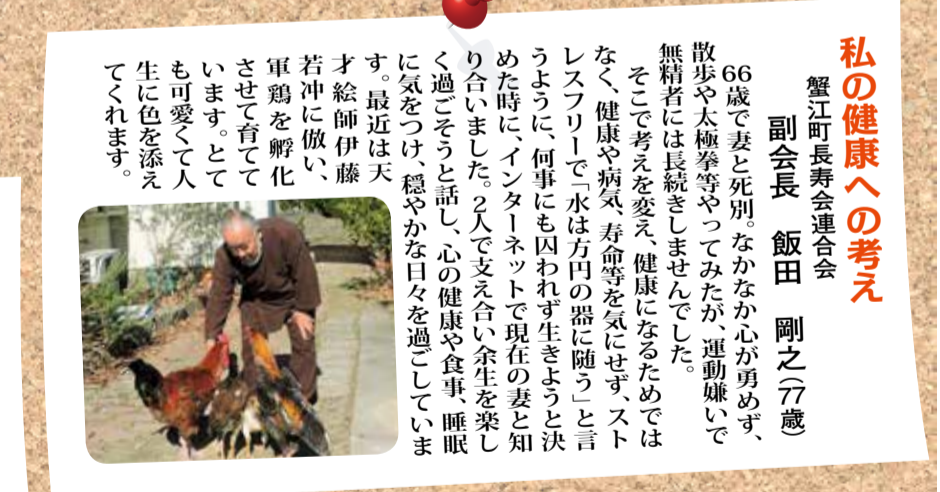 私の健康への考え
蟹江町長寿会連合会
副会長　飯田　剛之（77歳）
66歳で妻と死別。なかなか心が勇めず、
散歩や太極拳等やってみたが、運動嫌いで
無精者には長続きしませんでした。
そこで考えを変え、健康になるためでは
なく、健康や病気、寿命等を気にせず、スト
レスフリーで「水は方円の器に随う」と言
うように、何事にも囚われず生きようと決
めた時に、インターネットで現在の妻と知
り合いました。2人で支え合い余生を楽し
く過ごそうと話し、心の健康や食事、睡眠
に気をつけ、穏やかな日々を過ごしていま
す。最近は天
才絵師伊藤
若冲に倣い、
軍鶏を孵化
させて育てて
います。とて
も可愛くて人
生に色を添え
てくれます。